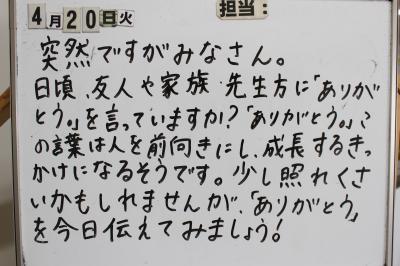 4月20日火 担当：
突然ですがみなさん。
日頃、友人や家族、先生方に「ありが
とう。」を言っていますか？「ありがとう。」こ
の言葉は人を前向きにし、成長するきっ
かけになるそうです。少し照れくさ
いかもしれませんが、「ありがとう」
を今日伝えてみましょう！